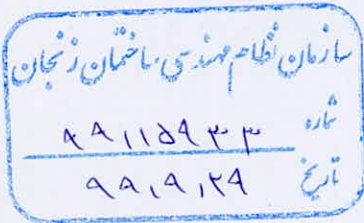 سازمان نظام مهندسی ساختمان زنجان
شماره ۹۹,۱۵۹۳۳
تاریخ ۹۹,۹,۲۹